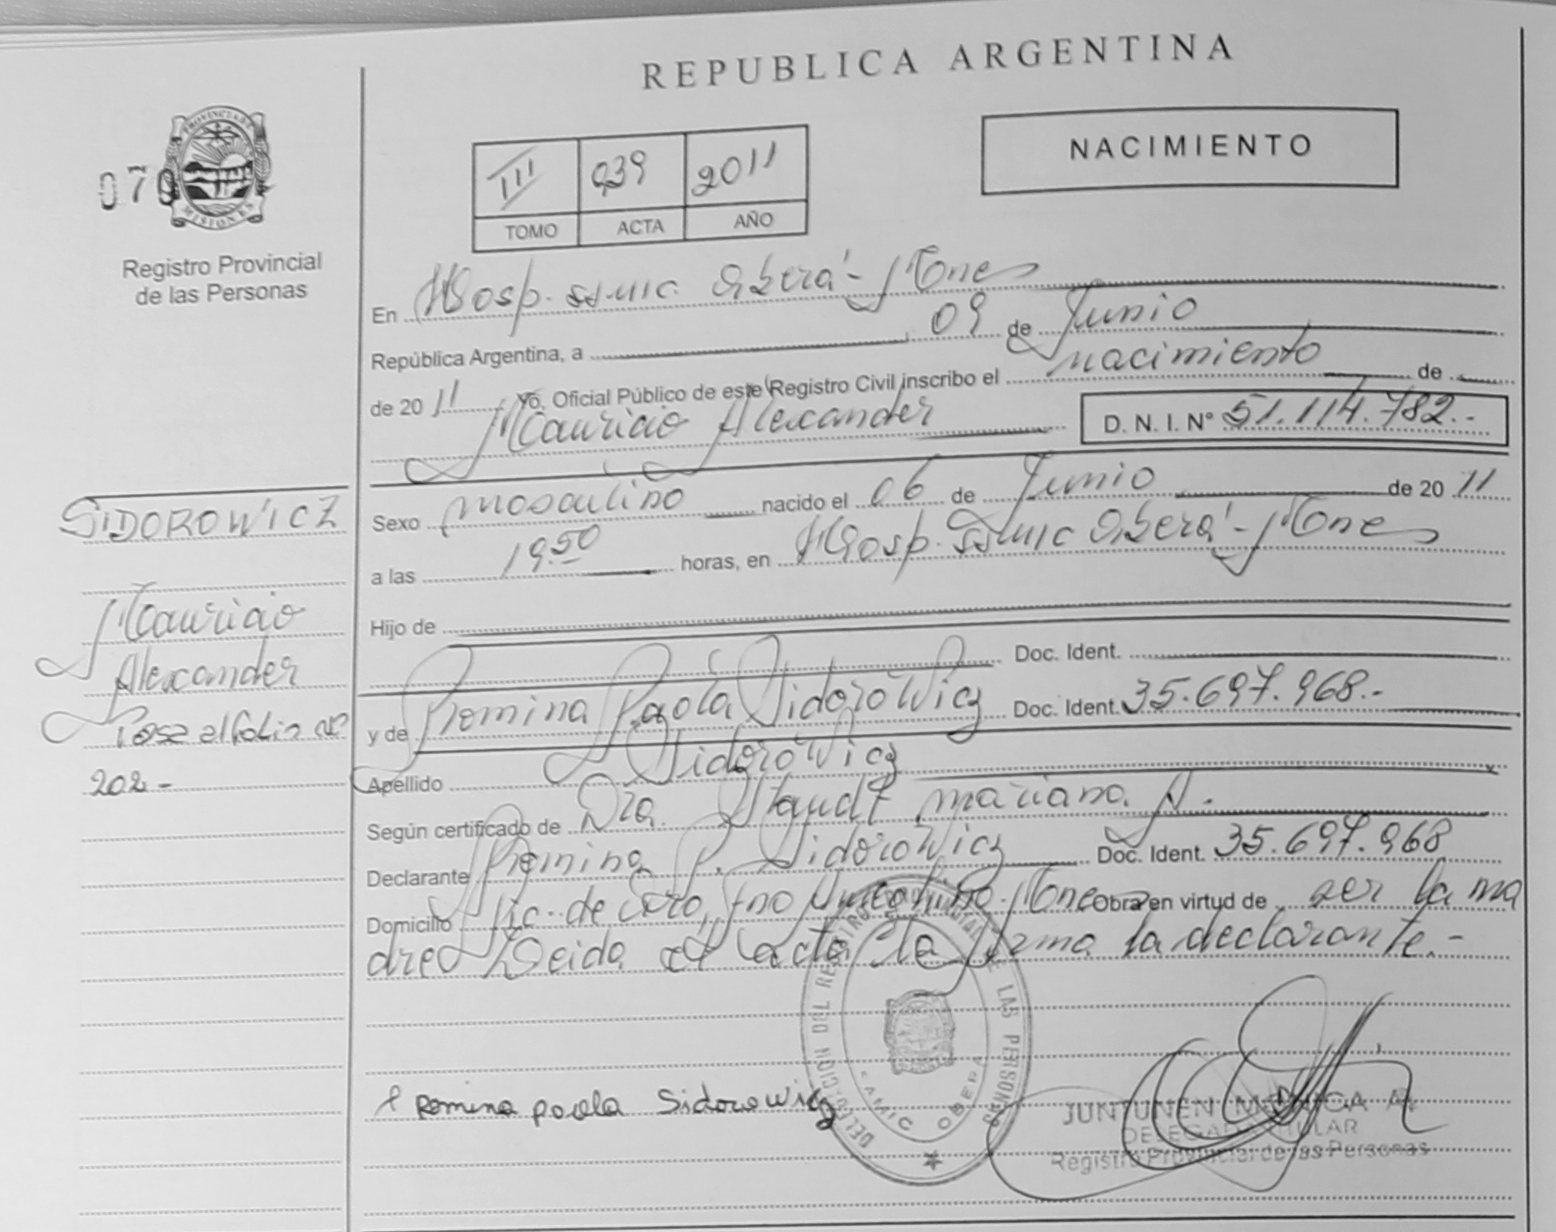 REPUBLICA ARGENTINA
NACIMIENTO
III 939 2011
TOMO ACTA AÑO
070
PROVINCIA DE MISIONES
Registro Provincial
de las Personas
En Hosp. SAMIC Oberá - Mones
República Argentina, a 09 de Junio
de 2011 Yo, Oficial Público de este Registro Civil inscribo el nacimiento de
Mauricio Alexander D. N. I. Nº 51.114.782.-
Sexo masculino nacido el 06 de Junio de 20 11
a las 19.50 horas, en Hosp. SAMIC Oberá - Mones
Hijo de
Doc. Ident.
y de Romina Paola Sidorowicz Doc. Ident. 35.697.968.-
Apellido Sidorowicz
Según certificado de Dra. Staudt Mariana A.
Declarante Romina P. Sidorowicz Doc. Ident. 35.697.968
Domicilio Pic. de Mones Obra en virtud de ser la ma
dre Leida el acta la firma la declarante.-
SIDOROWICZ
Mauricio
Alexander
Pase al folio nº
202-
Romina paola Sidorowicz
DELEGACION DEL REGISTRO PROVINCIAL DE LAS PERSONAS
SAMIC OBERA
JUNTUNEN MONICA A.
DELEGADA TITULAR
Registro Provincial de las Personas